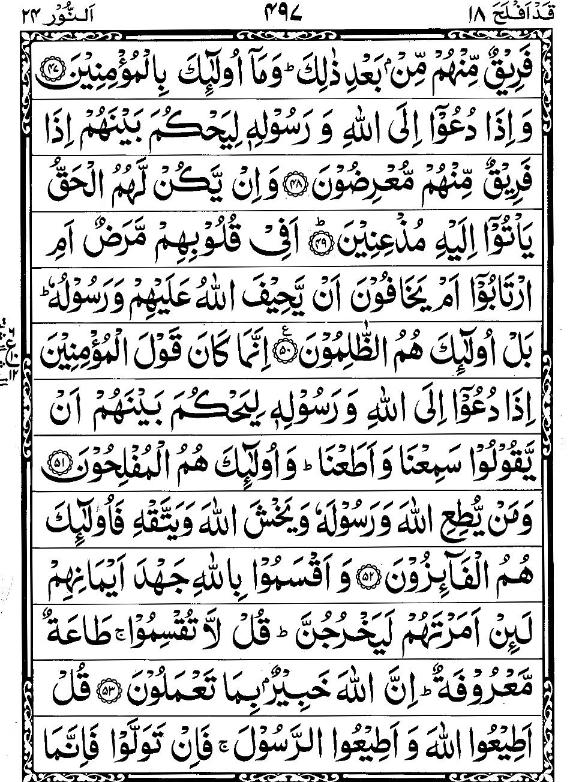 قَدْ اَفْلَحَ ١٨ ٤٩٧ اَلنُّوْر ٢٤
فَرِيْقٌ مِّنْهُمْ مِّنْۢ بَعْدِ ذٰلِكَ ؕ وَمَاۤ اُولٰٓئِكَ بِالْمُؤْمِنِيْنَ ﴿٤٧﴾
وَ اِذَا دُعُوْۤا اِلَى اللّٰهِ وَ رَسُوْلِهٖ لِيَحْكُمَ بَيْنَهُمْ اِذَا
فَرِيْقٌ مِّنْهُمْ مُّعْرِضُوْنَ ﴿٤٨﴾ وَ اِنْ يَّكُنْ لَّهُمُ الْحَقُّ
يَاْتُوْۤا اِلَيْهِ مُذْعِنِيْنَ ﴿٤٩﴾ؕ اَفِیْ قُلُوْبِهِمْ مَّرَضٌ اَمِ
ارْتَابُوْۤا اَمْ يَخَافُوْنَ اَنْ يَّحِيْفَ اللّٰهُ عَلَيْهِمْ وَ رَسُوْلُهٗ ؕ
بَلْ اُولٰٓئِكَ هُمُ الظّٰلِمُوْنَ ﴿٥٠﴾ع اِنَّمَا كَانَ قَوْلَ الْمُؤْمِنِيْنَ
اِذَا دُعُوْۤا اِلَى اللّٰهِ وَ رَسُوْلِهٖ لِيَحْكُمَ بَيْنَهُمْ اَنْ
يَّقُوْلُوْا سَمِعْنَا وَ اَطَعْنَا ؕ وَ اُولٰٓئِكَ هُمُ الْمُفْلِحُوْنَ ﴿٥١﴾
وَمَنْ يُّطِعِ اللّٰهَ وَ رَسُوْلَهٗ وَ يَخْشَ اللّٰهَ وَ يَتَّقْهِ فَاُولٰٓئِكَ
هُمُ الْفَآئِزُوْنَ ﴿٥٢﴾ وَ اَقْسَمُوْا بِاللّٰهِ جَهْدَ اَيْمَانِهِمْ
لَئِنْ اَمَرْتَهُمْ لَيَخْرُجُنَّ ؕ قُلْ لَّا تُقْسِمُوْا ۚ طَاعَةٌ
مَّعْرُوْفَةٌ ؕ اِنَّ اللّٰهَ خَبِيْرٌۢ بِمَا تَعْمَلُوْنَ ﴿٥٣﴾ قُلْ
اَطِيْعُوا اللّٰهَ وَ اَطِيْعُوا الرَّسُوْلَ ۚ فَاِنْ تَوَلَّوْا فَاِنَّمَا